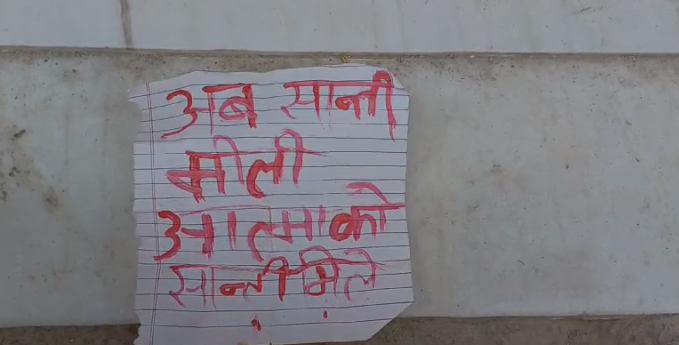 अब सान्ती
मीली
आत्मा को
सान्ती मिले